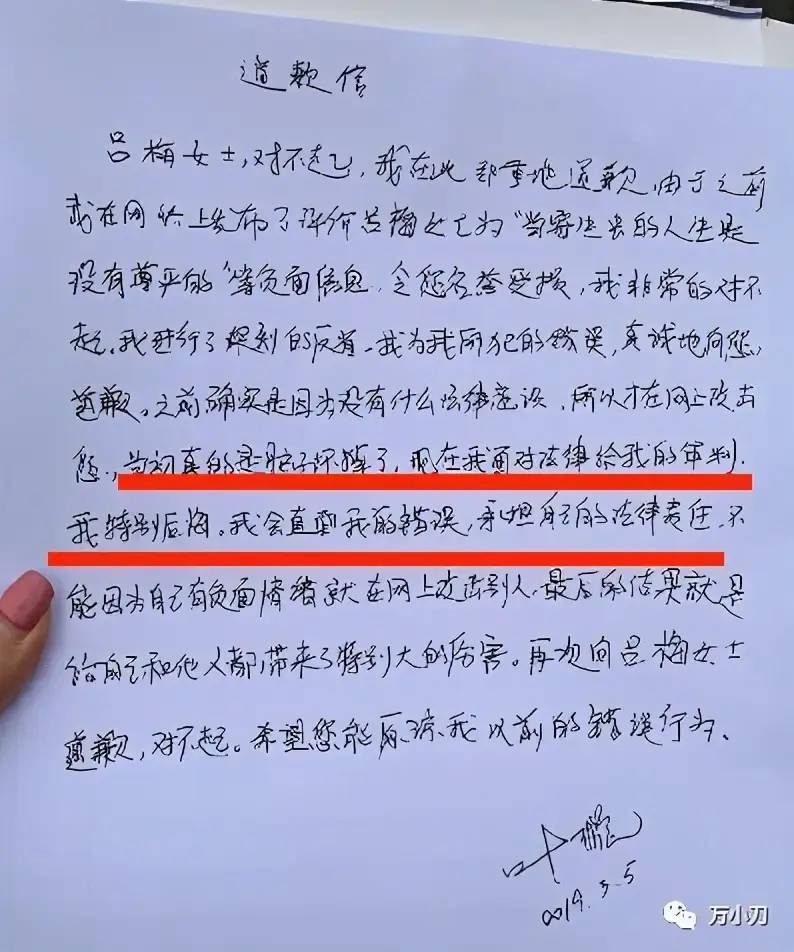 道歉信
吕梅女士，对不起，我在此郑重地道歉，由于之前
我在网络上发布了评价吕梅女士为“当寄生虫的人生是
没有尊严的”等负面信息，令您名誉受损，我非常的对不
起。我进行了深刻的反省。我为我所犯的错误，真诚地向您
道歉。之前确实是因为没有什么法律意识，所以才在网上攻击
您，当初真的是脑子坏掉了，现在我面对法律给我的审判，
我特别后悔。我会直面我的错误，承担自己的法律责任，不
能因为自己有负面情绪就在网上攻击别人，最后的结果就是
给自己和他人都带来了特别大的伤害。再次向吕梅女士
道歉，对不起。希望您能原谅我以前的错误行为。
叶
2019.3.5
万小刀